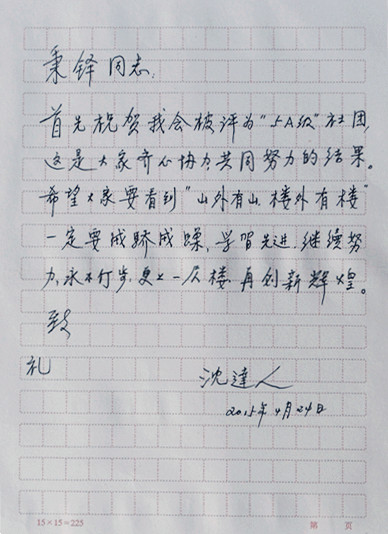 秉铎同志:
首先祝贺我会被评为"5A级"社团,
这是大家齐心协力,共同努力的结果。
希望大家要看到"山外有山,楼外有楼"
一定要戒骄戒躁,学习先进,继续努
力,永不停步,更上一层楼,再创新辉煌。
致
礼
沈达人
2015年4月24日
15×15=225
第 页